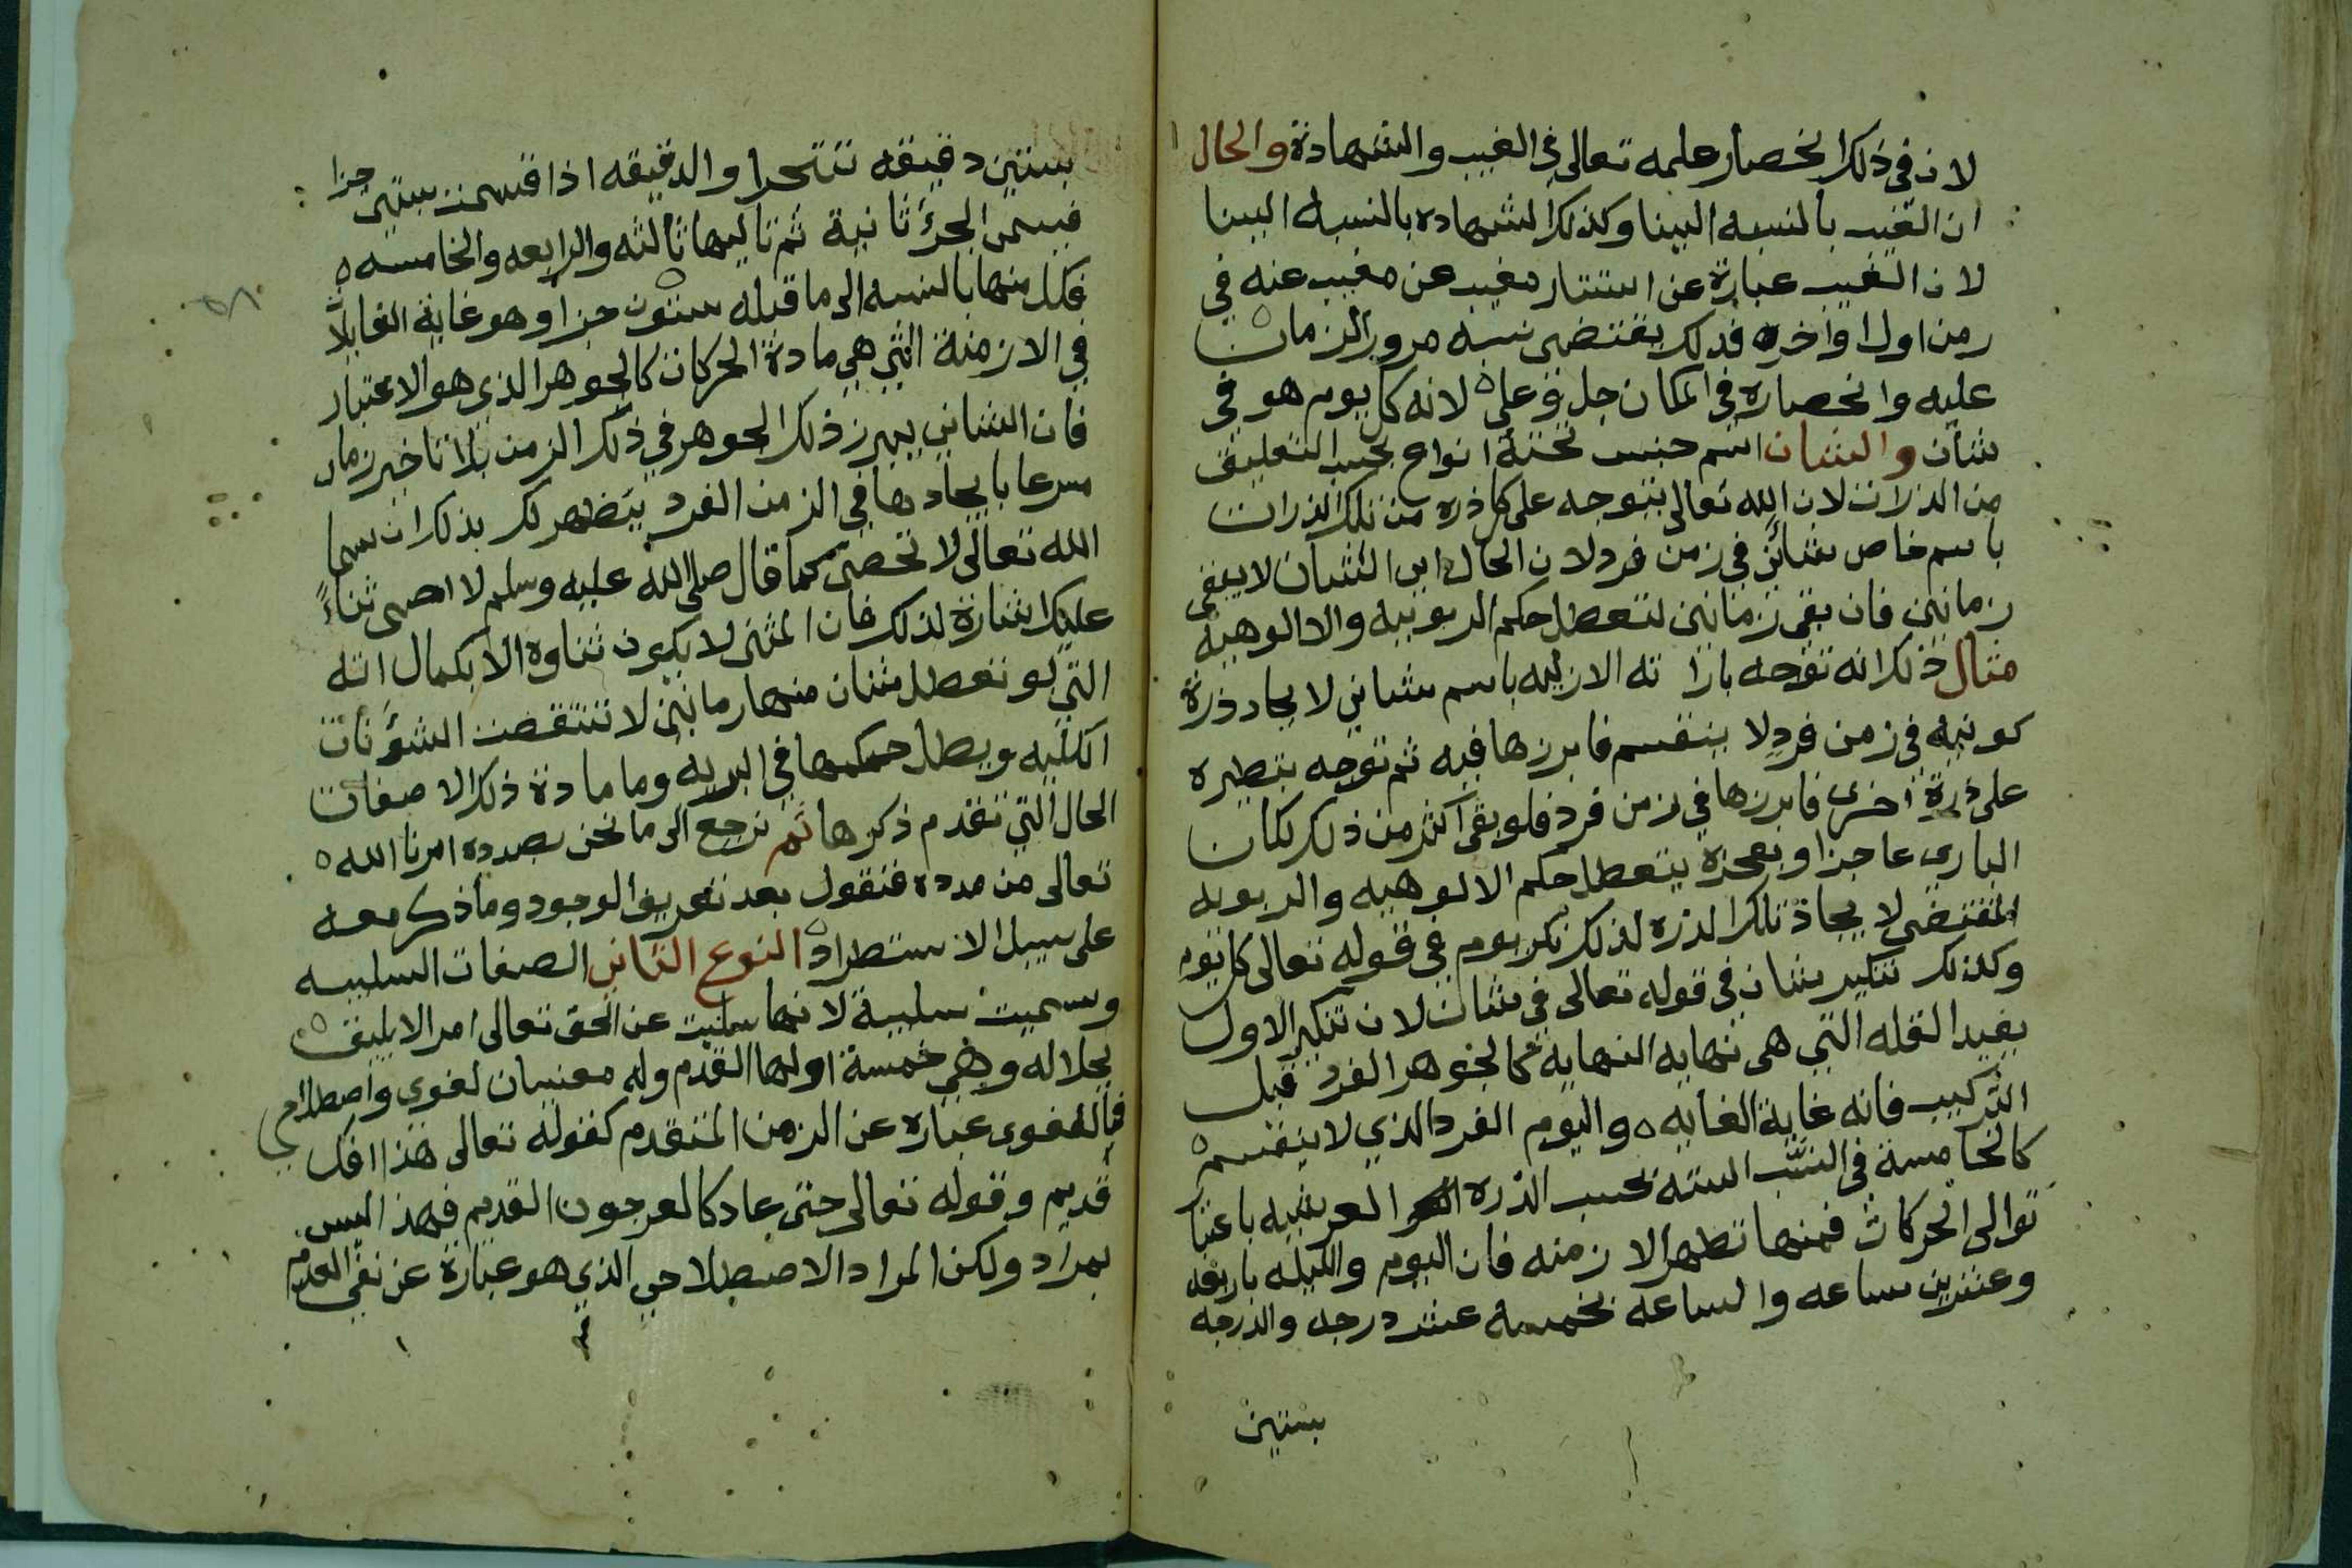 لان في ذلك انحصار علمه تعالى في الغيب والشهادة والحال
ان الغيب بالنسبه الينا وكذلك الشهاده بالنسبه الينا
لان الغيب عبارة عن استتار مغيب عن مغيب عنه في
زمن اول او اخره فذلك يقتضى نسبه مرور الزمان
عليه وانحصاره في المكان جل وعلى لانه كل يوم هو في
شان والشان اسم جنس تحته انواع بحسب التعليق
من الذرات لان الله تعالى يتوجه على كل ذره من تلك الذرات
باسم خاص شائن في زمن فرد لان الحال اى الشان لا يبقى
زمانين فان بقى زمانين لتعطل حكم الربوبيه والالوهية
مثال ذلك انه توجه باراد ته الازليه باسم شانى لايجاد ذرة
كونيه في زمن فرد لا ينقسم فابرزها فيه ثم توجه بنظيره
على ذرة اخرى فابرزها في زمن فرد فلو بقى اكثر من ذلك لكان
البارى عاجزا وبعجزه يتعطل حكم الالوهيه والربوبيه
المقتضى لايجاد تلك الذره لذلك نكر يوم في قوله تعالى كل يوم
وكذلك تنكير شان في قوله تعالى في شان لان تنكير الاول
يفيد القله التي هى نهايه النهاية كالجوهر الفرد قبل
التركيب فانه غاية الغايه ه واليوم الفرد الذي لا ينقسم ه
كالخامسة في النسب السته بحسب الذره العرشيه باعتبا
توالى الحركات فمنها تظهر الازمنه فان اليوم والليله باربعه
وعشرين ساعه والساعه بخمسة عشر درجه والدرجه
بستين
بستين دقيقه تتحرا والدقيقه اذا قسمت ستين جزا
فيسمى الجزؤ ثانية ثم تاليها ثالثه والرابعه والخامسه ه
فكل منها بالنسبه الى ما قبله ستون جزا وهو غاية الغايات
في الازمنة التي هي مادة الحركات كالجوهر الذي هو الاعتبار
فان الشانى يبرز ذلك الجوهر في ذلك الزمن بلا تاخير زمان
مسرعا بايجادها في الزمن الفرد يتضهر لك بذلك ان سما
الله تعالى لا تحصى كما قال صلى الله عليه وسلم لا احصى ثناءً
عليك اشارة لذلك فان المثنى لا يكون ثناوه الا بكمال اته
التي لو تعطل شان منها زمانين لانتقضت الشؤنات
الكليه وبطل حكمها في البريه وما مادة ذلك الا صفات
الحال التي تقدم ذكرها ثم نرجع الى ما نحن بصدده امرنا الله ه
تعالى من مدده فنقول بعد تعريف الوجود وما ذكر معه
على سبيل الاستطراد النوع الثانى الصفات السلبيه
وسميت سلبية لانها سلبت عن الحق تعالى امر الا يليق ه
بجلاله وهى خمسة اولها القدم وله معنيان لغوى واصطلاحي
فاللغوى عباره عن الزمن المتقدم كقوله تعالى هذا افك
قديم وقوله تعالى حتى عاد كالعرجون القديم فهذا ليس
بمراد ولكن المراد الاصطلاحي الذي هو عبارة عن نفي العدم